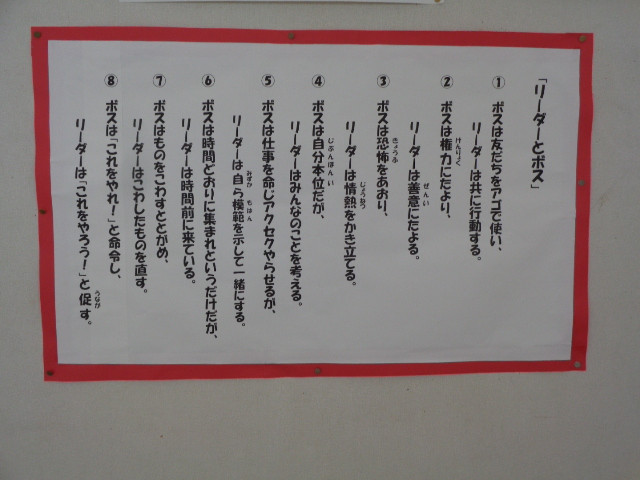 「リーダーとボス」
① ボスは友だちをアゴで使い、
リーダーは共に行動する。
② ボスは権力にだより、
リーダーは善意にだよる。
③ ボスは恐怖をあおり、
リーダーは情熱をかき立てる。
④ ボスは自分本位だが、
リーダーはみんなのことを考える。
⑤ ボスは仕事を命じアクセクやらせるが、
リーダーは自ら模範を示して一緒にする。
⑥ ボスは時間どおりに集まれというだけだが、
リーダーは時間前に来ている。
⑦ ボスはものをこわすととがめ、
リーダーはこわしたものを直す。
⑧ ボスは「これをやれ！」と命令し、
リーダーは「これをやろう！」と促す。